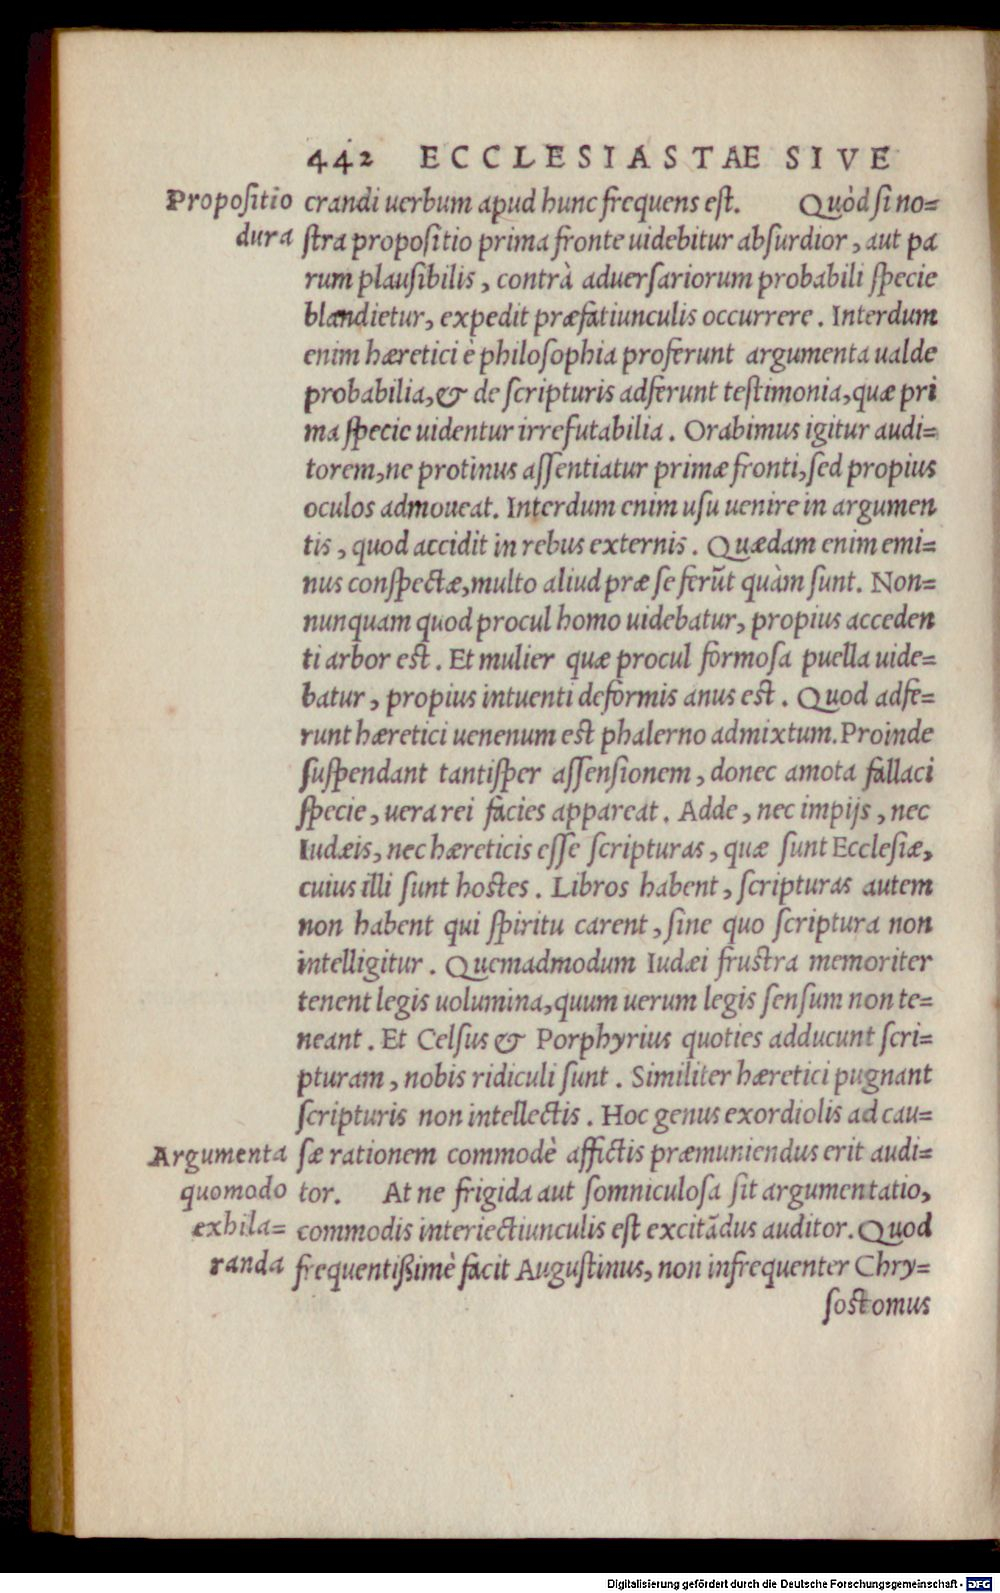 442 ECCLESIASTAE SIVE
Propositio crandi uerbum apud hunc frequens est. Quòd si no=
dura stra propositio prima fronte uidebitur absurdior, aut pa
rum plausibilis, contrà aduersariorum probabili specie
blandietur, expedit præfatiunculis occurrere. Interdum
enim hæretici è philosophia proferunt argumenta ualde
probabilia, & de scripturis adferunt testimonia, quæ pri
ma specie uidentur irrefutabilia. Orabimus igitur audi=
torem, ne protinus assentiatur primæ fronti, sed propius
oculos admoueat. Interdum enim usu uenire in argumen
tis, quod accidit in rebus externis. Quædam enim emi=
nus conspectæ, multo aliud præ se ferūt quàm sunt. Non=
nunquam quod procul homo uidebatur, propius acceden
ti arbor est. Et mulier quæ procul formosa puella uide=
batur, propius intuenti deformis anus est. Quod adfe=
runt hæretici uenenum est phalerno admixtum. Proinde
suspendant tantisper assensionem, donec amota fallaci
specie, uera rei facies appareat. Adde, nec impijs, nec
Iudæis, nec hæreticis esse scripturas, quæ sunt Ecclesiæ,
cuius illi sunt hostes. Libros habent, scripturas autem
non habent qui spiritu carent, sine quo scriptura non
intelligitur. Quemadmodum Iudæi frustra memoriter
tenent legis uolumina, quum uerum legis sensum non te=
neant. Et Celsus & Porphyrius quoties adducunt scri=
pturam, nobis ridiculi sunt. Similiter hæretici pugnant
scripturis non intellectis. Hoc genus exordiolis ad cau=
Argumenta sæ rationem commodè affictis præmuniendus erit audi=
quomodo tor. At ne frigida aut somniculosa sit argumentatio,
exhila= commodis interiectiunculis est excitādus auditor. Quod
randa frequentißimè facit Augustinus, non infrequenter Chry=
sostomus
Digitalisierung gefördert durch die Deutsche Forschungsgemeinschaft - DFG